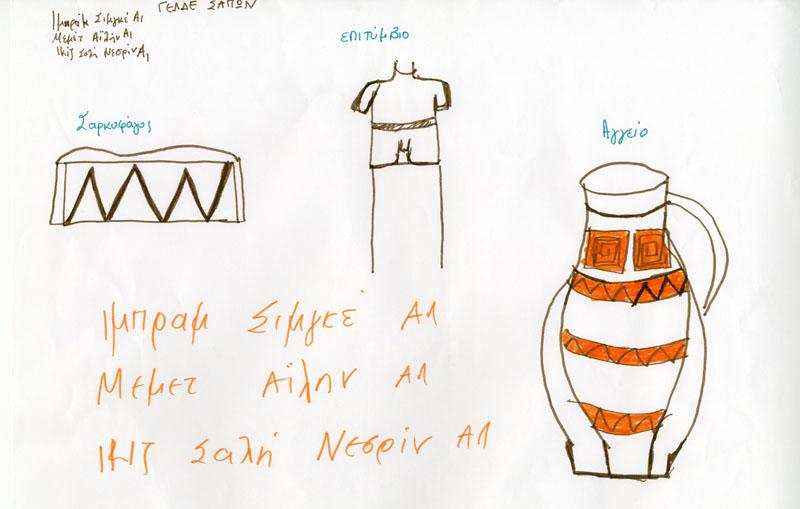 ΓΕΛΔΕ ΣΑΠΩΝ
Ιμπράμ Σιμγκέ Α1
Μεμέτ Αϊλήν Α1
Ικίζ Σαλή Νεσρίν Α1
ΕΠΙΤύΜΒΙΟ
Σαρκοφάγος
Αγγείο
Ιμπραμ Σιμγκέ Α1
Μεμετ Αϊλην Α1
Ικιζ Σαλή Νεσρίν Α1